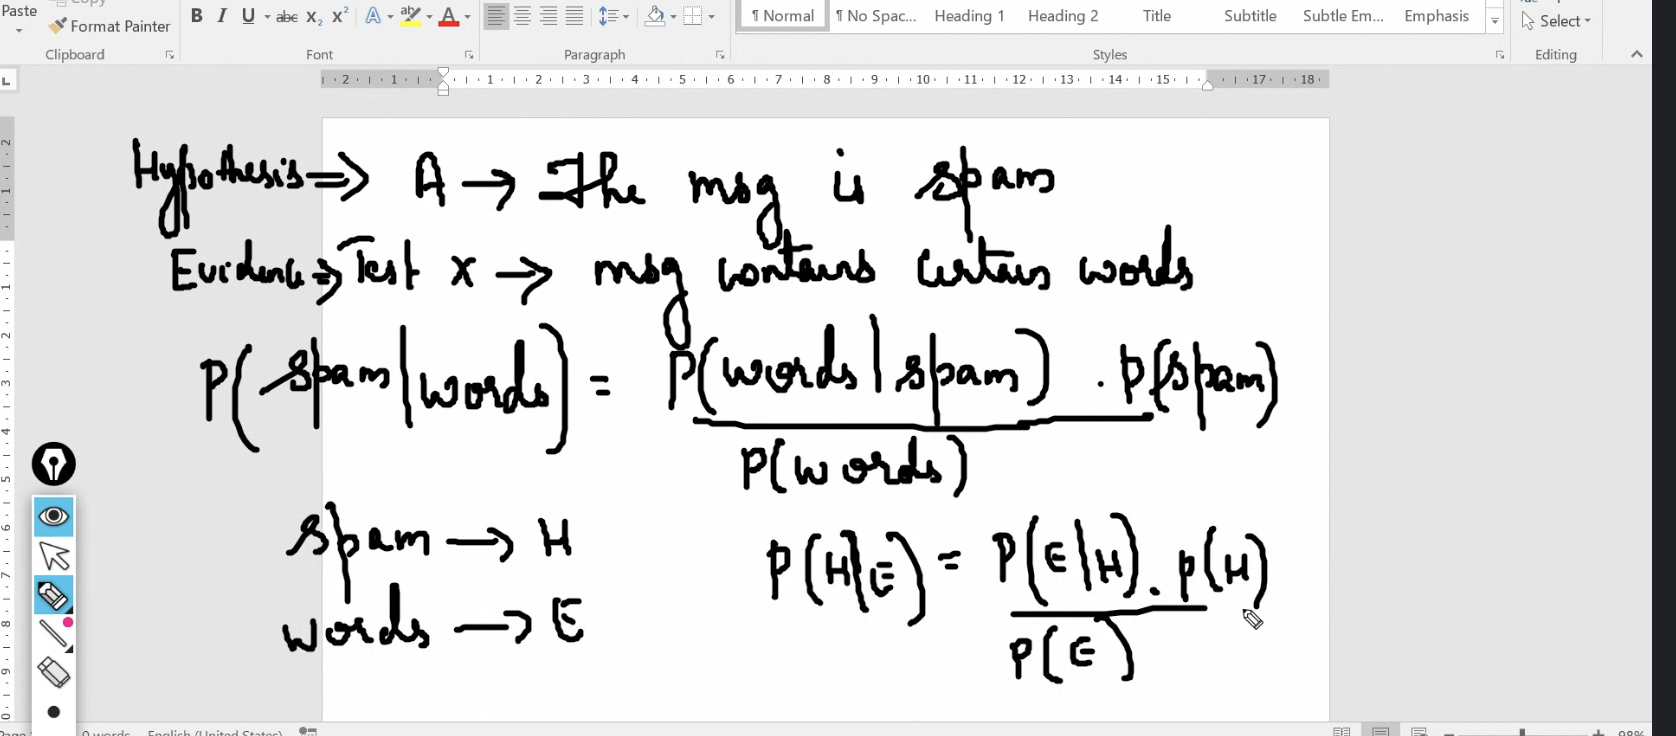 Paste
Copy
Format Painter
Clipboard
B I U abc X₂ X² A ab A
Font
Paragraph
¶ Normal ¶ No Spac... Heading 1 Heading 2 Title Subtitle Subtle Em... Emphasis
Styles
Select
Editing
2 1 1 2 3 4 5 6 7 8 9 10 11 12 13 14 15 17 18
Hypothesis => A → The msg is spam
Evidence => Test X → msg contains certain words
P(spam|words) = P(words|spam) . P(spam)
P(words)
spam → H
words → E
P(H|E) = P(E|H) . P(H)
P(E)
0 words English (United States) 98%